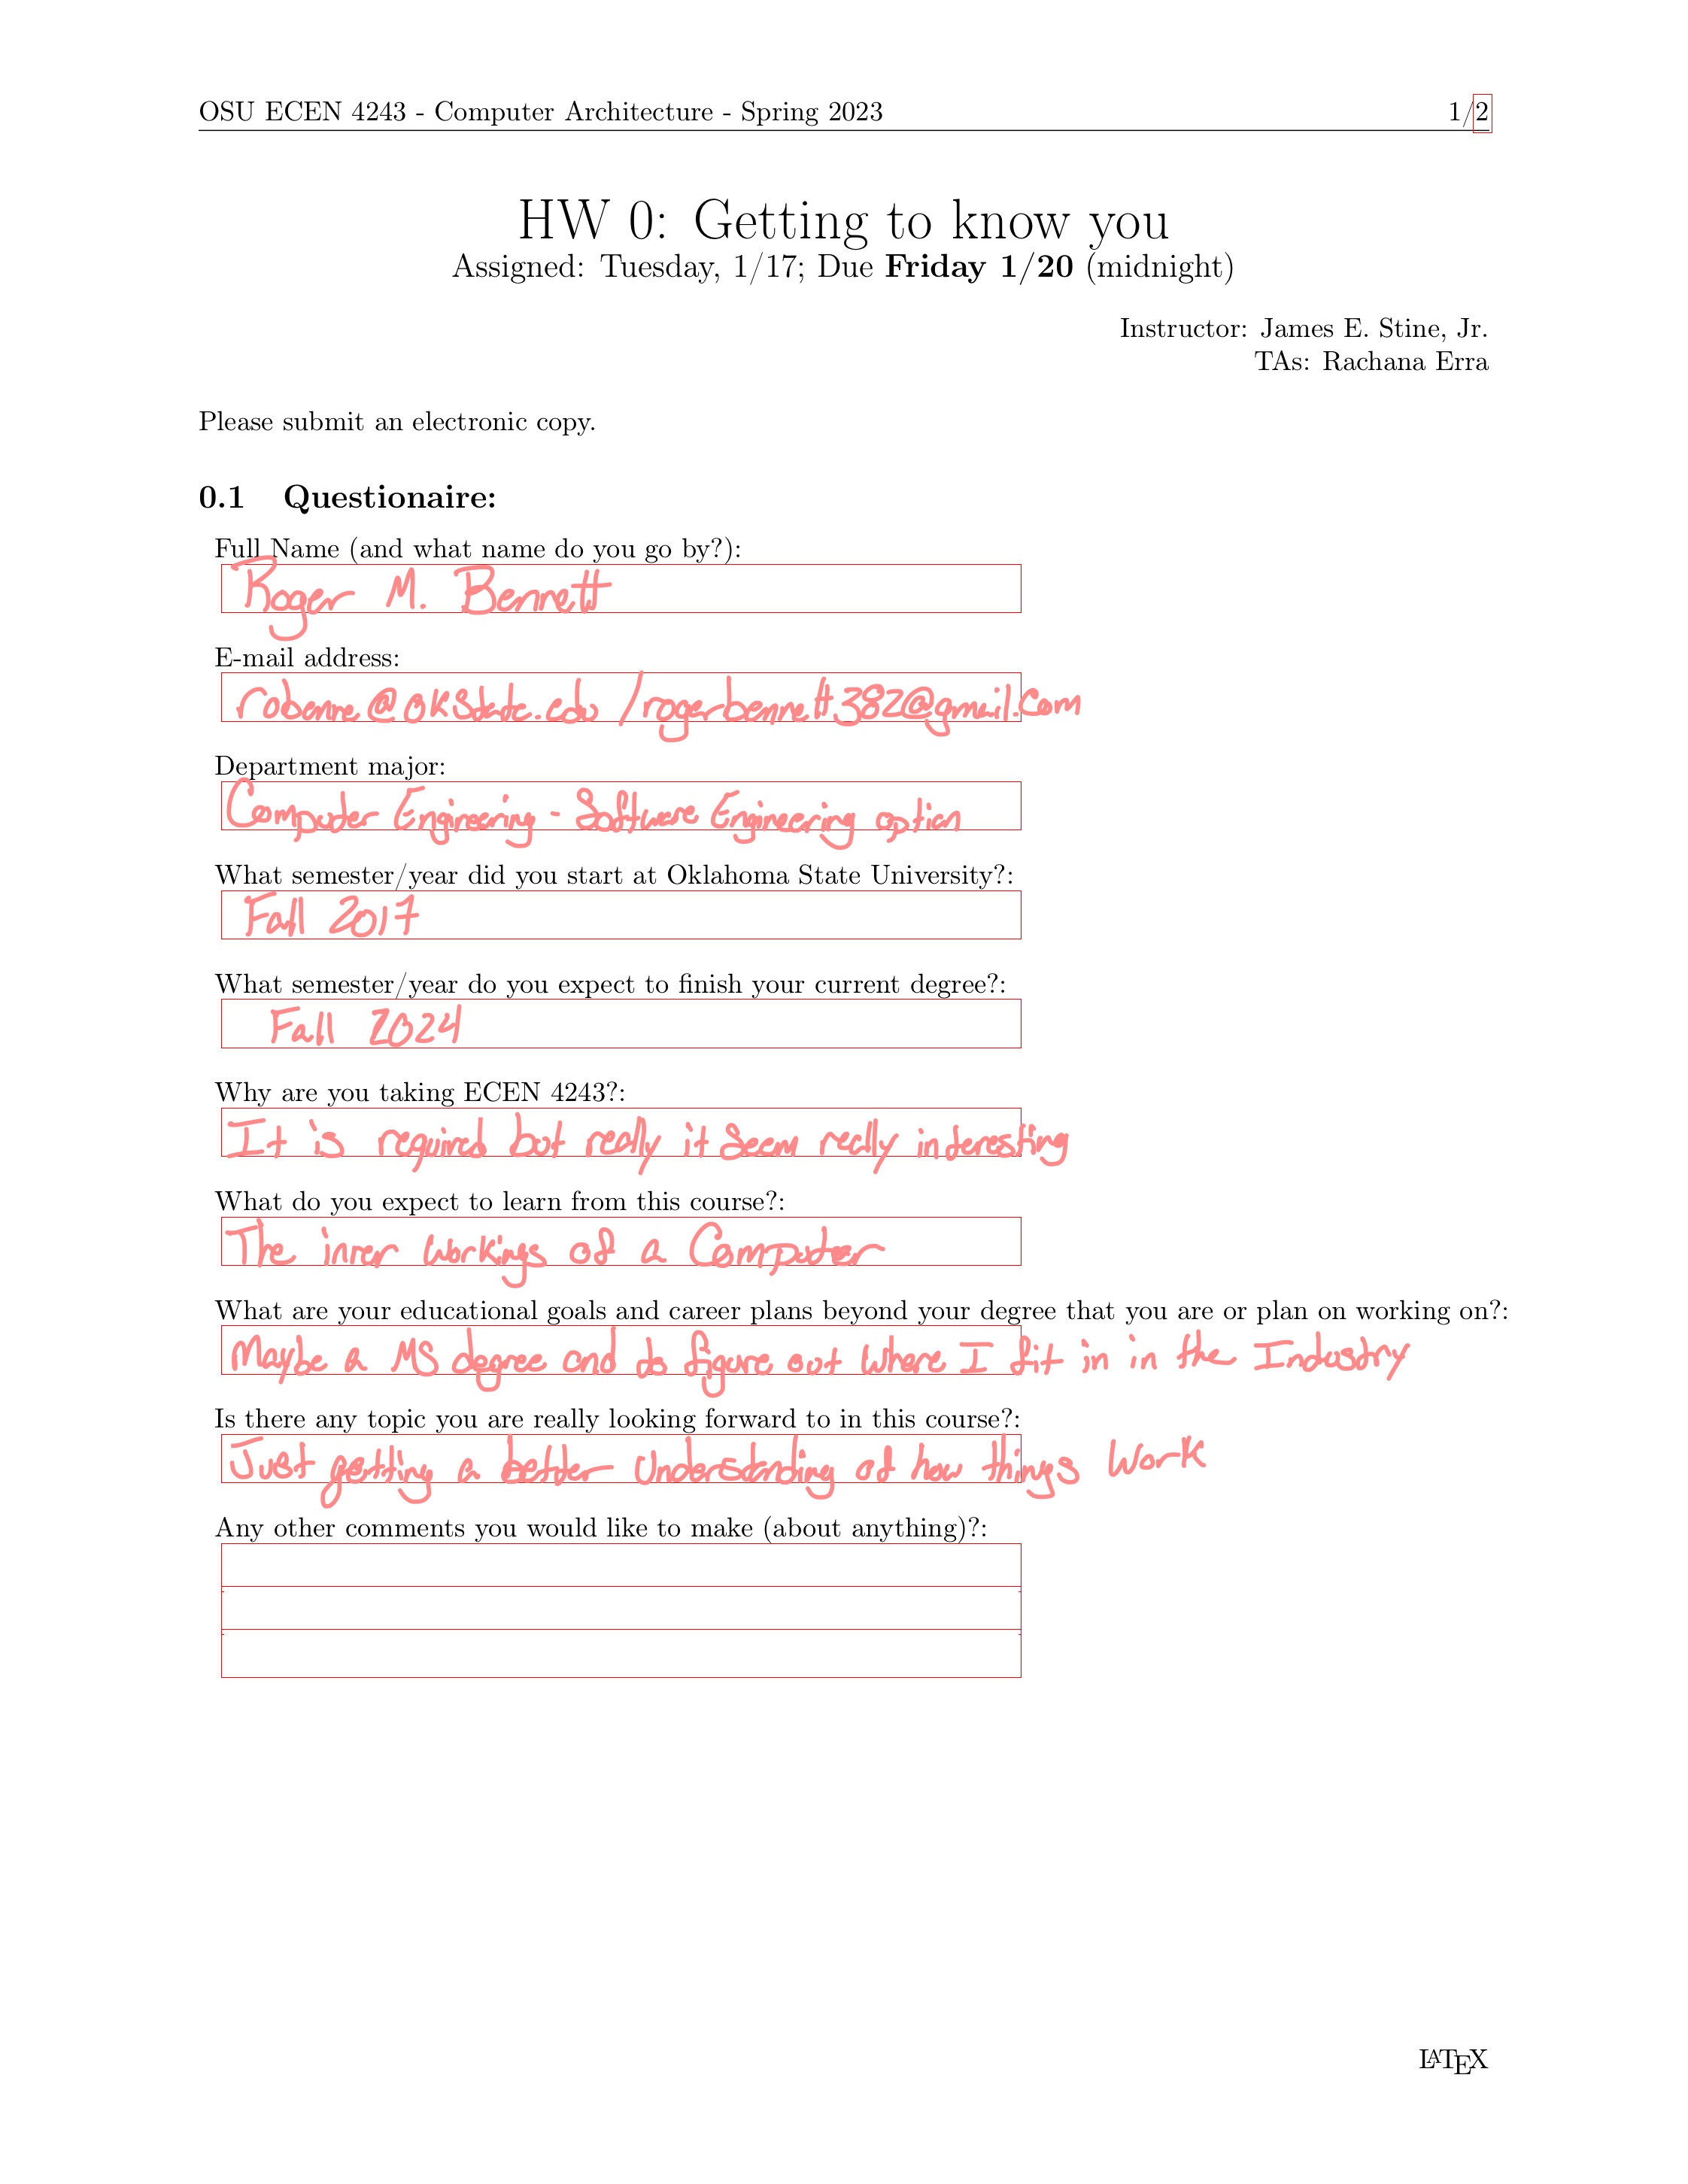 OSU ECEN 4243 - Computer Architecture - Spring 2023 1/2
HW 0: Getting to know you
Assigned: Tuesday, 1/17; Due Friday 1/20 (midnight)
Instructor: James E. Stine, Jr.
TAs: Rachana Erra
Please submit an electronic copy.
0.1 Questionaire:
Full Name (and what name do you go by?):
Roger M. Bennett
E-mail address:
robenne@okstate.edu /rogerbennett382@gmail.com
Department major:
Computer Engineering - Software Engineering option
What semester/year did you start at Oklahoma State University?:
Fall 2017
What semester/year do you expect to finish your current degree?:
Fall 2024
Why are you taking ECEN 4243?:
It is required but really it seem really interesting
What do you expect to learn from this course?:
The inner workings of a Computer
What are your educational goals and career plans beyond your degree that you are or plan on working on?:
Maybe a MS degree and to figure out where I fit in in the Industry
Is there any topic you are really looking forward to in this course?:
Just getting a better Understanding of how things work
Any other comments you would like to make (about anything)?:
LATEX